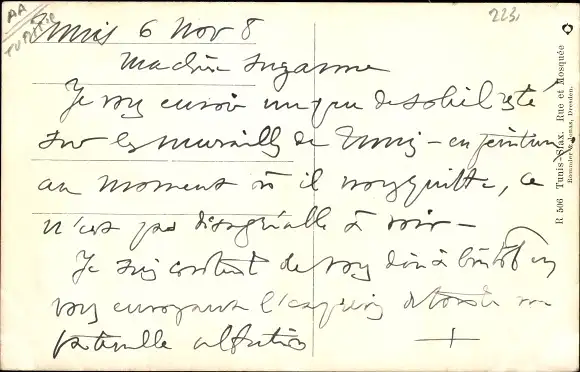 AA
TUNISIE
223.
Tunis 6 Nov 8
Ma chère Suzanne
Je vous envoie un peu de soleil resté
sur les murailles de Tunis – en peinture
au moment où il nous quitte, ce
n'est pas désagréable à voir –
Je suis content de vous dire à bientôt en
vous envoyant l'expression de toute ma
paternelle affection
R 506 Tunis-Sfax. Rue et Mosquée
Dresden.